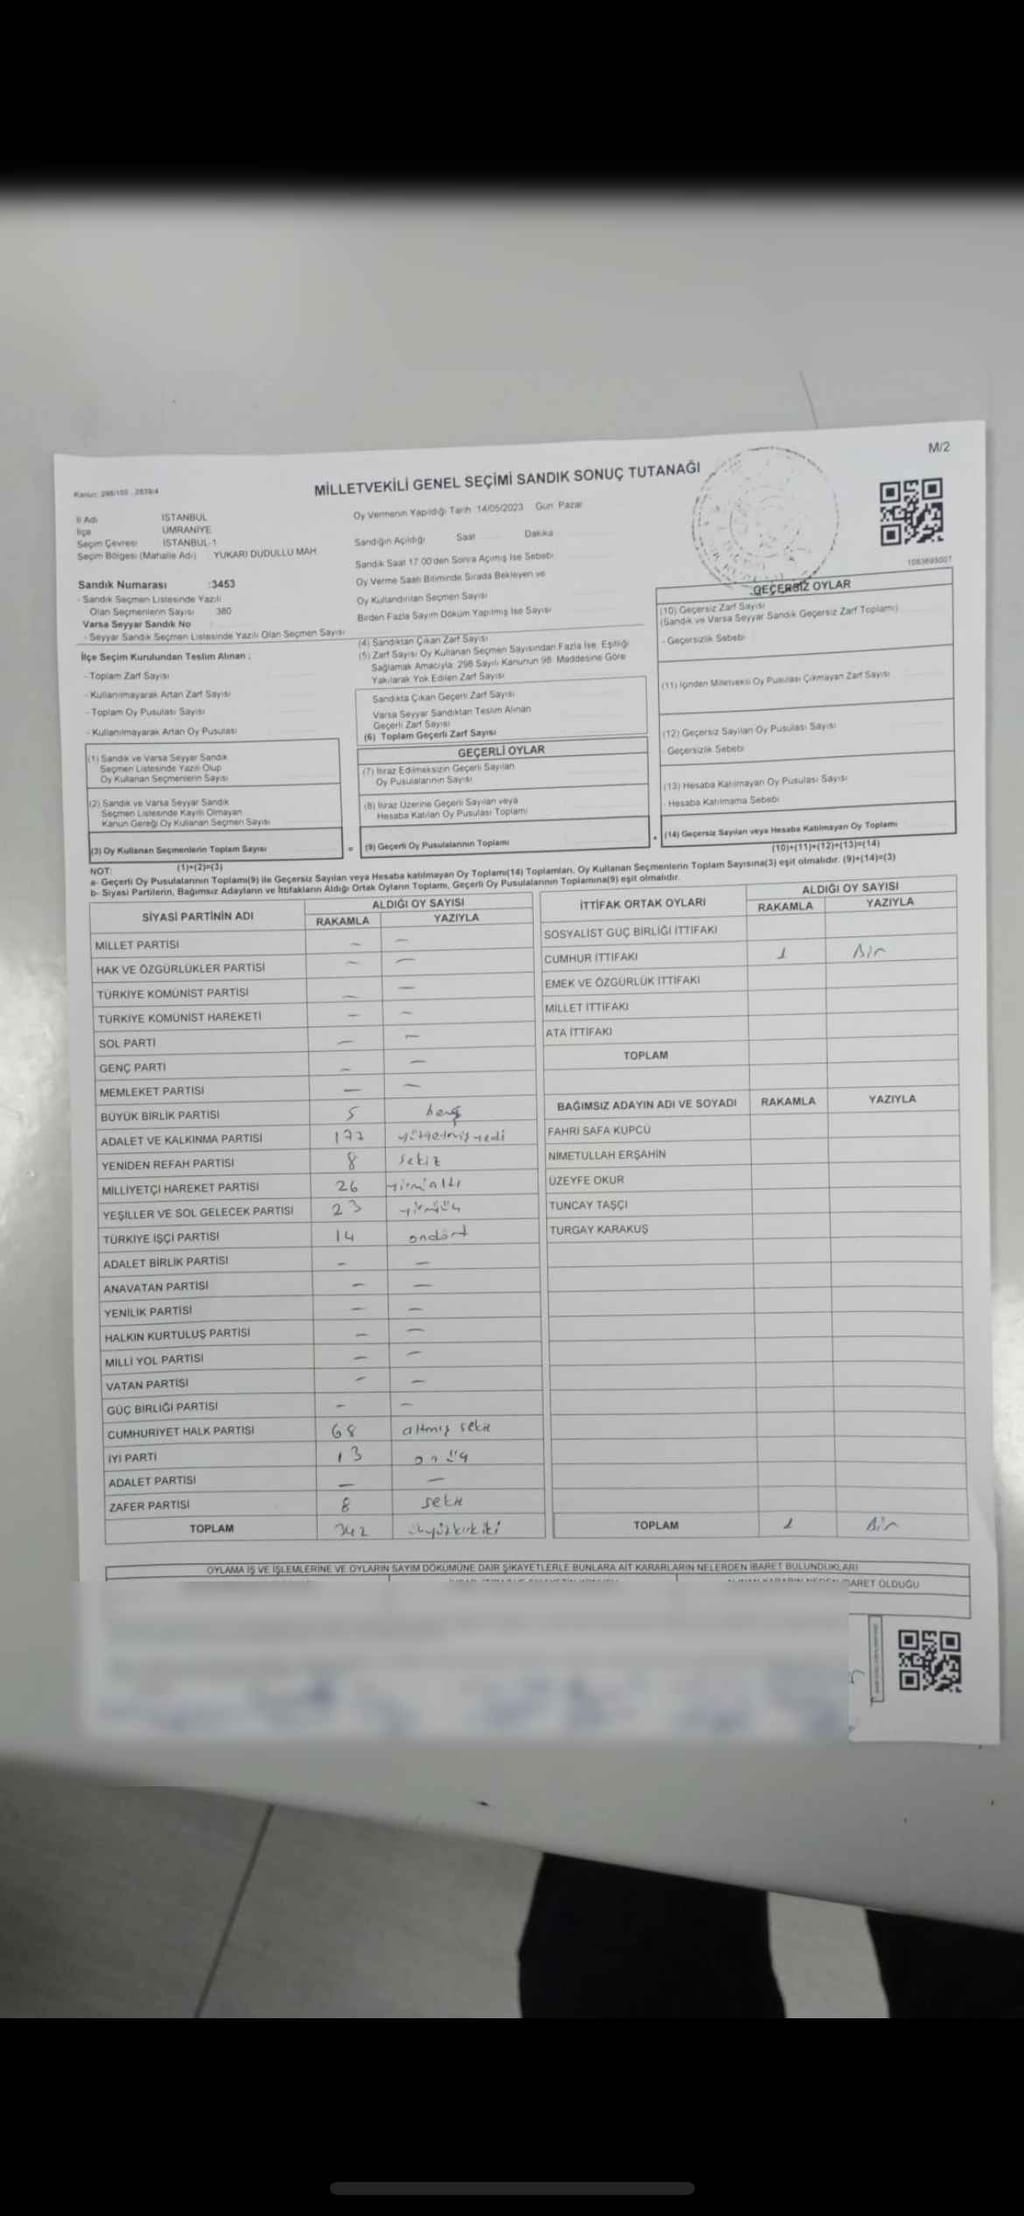 M/2
Kanun: 298/105 , 2839/4
MİLLETVEKİLİ GENEL SEÇİMİ SANDIK SONUÇ TUTANAĞI
İl Adı İSTANBUL
İlçe ÜMRANİYE
Seçim Çevresi İSTANBUL-1
Seçim Bölgesi (Mahalle Adı) YUKARI DUDULLU MAH.
Sandık Numarası :3453
- Sandık Seçmen Listesinde Yazılı
Olan Seçmenlerin Sayısı 380
Varsa Seyyar Sandık No
- Seyyar Sandık Seçmen Listesinde Yazılı Olan Seçmen Sayısı
Oy Vermenin Yapıldığı Tarih 14/05/2023 Gün: Pazar
Sandığın Açıldığı Saat Dakika
Sandık Saat 17:00'den Sonra Açılmış İse Sebebi
Oy Verme Saati Bitiminde Sırada Bekleyen ve
Oy Kullandırılan Seçmen Sayısı
Birden Fazla Sayım Döküm Yapılmış İse Sayısı
1083695007
İlçe Seçim Kurulundan Teslim Alınan :
- Toplam Zarf Sayısı
- Kullanılmayarak Artan Zarf Sayısı
- Toplam Oy Pusulası Sayısı
- Kullanılmayarak Artan Oy Pusulası
(1) Sandık ve Varsa Seyyar Sandık
Seçmen Listesinde Yazılı Olup
Oy Kullanan Seçmenlerin Sayısı
(2) Sandık ve Varsa Seyyar Sandık
Seçmen Listesinde Kayıtlı Olmayan
Kanun Gereği Oy Kullanan Seçmen Sayısı
(3) Oy Kullanan Seçmenlerin Toplam Sayısı
(1)+(2)=(3)
(4) Sandıktan Çıkan Zarf Sayısı
(5) Zarf Sayısı Oy Kullanan Seçmen Sayısından Fazla İse, Eşitliği
Sağlamak Amacıyla 298 Sayılı Kanunun 98. Maddesine Göre
Yakılarak Yok Edilen Zarf Sayısı
Sandıkta Çıkan Geçerli Zarf Sayısı
Varsa Seyyar Sandıktan Teslim Alınan
Geçerli Zarf Sayısı
(6) Toplam Geçerli Zarf Sayısı
GEÇERLİ OYLAR
(7) İtiraz Edilmeksizin Geçerli Sayılan
Oy Pusulalarının Sayısı
(8) İtiraz Üzerine Geçerli Sayılan veya
Hesaba Katılan Oy Pusulası Toplamı
= (9) Geçerli Oy Pusulalarının Toplamı
GEÇERSİZ OYLAR
(10) Geçersiz Zarf Sayısı
(Sandık ve Varsa Seyyar Sandık Geçersiz Zarf Toplamı)
- Geçersizlik Sebebi
(11) İçinden Milletvekili Oy Pusulası Çıkmayan Zarf Sayısı
(12) Geçersiz Sayılan Oy Pusulası Sayısı
Geçersizlik Sebebi
(13) Hesaba Katılmayan Oy Pusulası Sayısı
- Hesaba Katılmama Sebebi
+ (14) Geçersiz Sayılan veya Hesaba Katılmayan Oy Toplamı
(10)+(11)+(12)+(13)=(14)
NOT:
a- Geçerli Oy Pusulalarının Toplamı(9) ile Geçersiz Sayılan veya Hesaba katılmayan Oy Toplamı(14) Toplamları, Oy Kullanan Seçmenlerin Toplam Sayısına(3) eşit olmalıdır. (9)+(14)=(3)
b- Siyasi Partilerin, Bağımsız Adayların ve İttifakların Aldığı Ortak Oyların Toplamı, Geçerli Oy Pusulalarının Toplamına(9) eşit olmalıdır.
SİYASİ PARTİNİN ADI ALDIĞI OY SAYISI
RAKAMLA YAZIYLA
MİLLET PARTİSİ — —
HAK VE ÖZGÜRLÜKLER PARTİSİ — —
TÜRKİYE KOMÜNİST PARTİSİ — —
TÜRKİYE KOMÜNİST HAREKETİ — —
SOL PARTİ — —
GENÇ PARTİ — —
MEMLEKET PARTİSİ — —
BÜYÜK BİRLİK PARTİSİ 5 beş
ADALET VE KALKINMA PARTİSİ 177 yüzyetmişyedi
YENİDEN REFAH PARTİSİ 8 sekiz
MİLLİYETÇİ HAREKET PARTİSİ 26 yirmialtı
YEŞİLLER VE SOL GELECEK PARTİSİ 23 yirmiüç
TÜRKİYE İŞÇİ PARTİSİ 14 ondört
ADALET BİRLİK PARTİSİ — —
ANAVATAN PARTİSİ — —
YENİLİK PARTİSİ — —
HALKIN KURTULUŞ PARTİSİ — —
MİLLİ YOL PARTİSİ — —
VATAN PARTİSİ — —
GÜÇ BİRLİĞİ PARTİSİ — —
CUMHURİYET HALK PARTİSİ 68 altmış sekiz
İYİ PARTİ 13 onüç
ADALET PARTİSİ — —
ZAFER PARTİSİ 8 sekiz
TOPLAM 342 üçyüzkırkiki
İTTİFAK ORTAK OYLARI ALDIĞI OY SAYISI
RAKAMLA YAZIYLA
SOSYALİST GÜÇ BİRLİĞİ İTTİFAKI
CUMHUR İTTİFAKI 1 Bir
EMEK VE ÖZGÜRLÜK İTTİFAKI
MİLLET İTTİFAKI
ATA İTTİFAKI
TOPLAM
BAĞIMSIZ ADAYIN ADI VE SOYADI RAKAMLA YAZIYLA
FAHRİ SAFA KÜPCÜ
NİMETULLAH ERŞAHİN
ÜZEYFE OKUR
TUNCAY TAŞÇI
TURGAY KARAKUŞ
TOPLAM 1 Bir
OYLAMA İŞ VE İŞLEMLERİNE VE OYLARIN SAYIM DÖKÜMÜNE DAİR ŞİKAYETLERLE BUNLARA AİT KARARLARIN NELERDEN İBARET BULUNDUKLARI
İBARET OLDUĞU